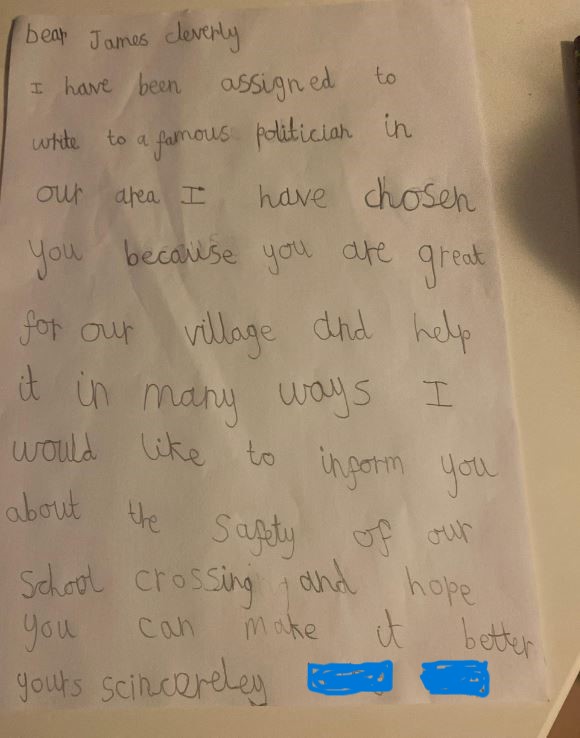 Dear James cleverly
I have been assigned to
write to a famous politician in
our area I have chosen
you because you are great
for our village and help
it in many ways I
would like to inform you
about the safety of our
school crossing and hope
you can make it better
yours scincereley